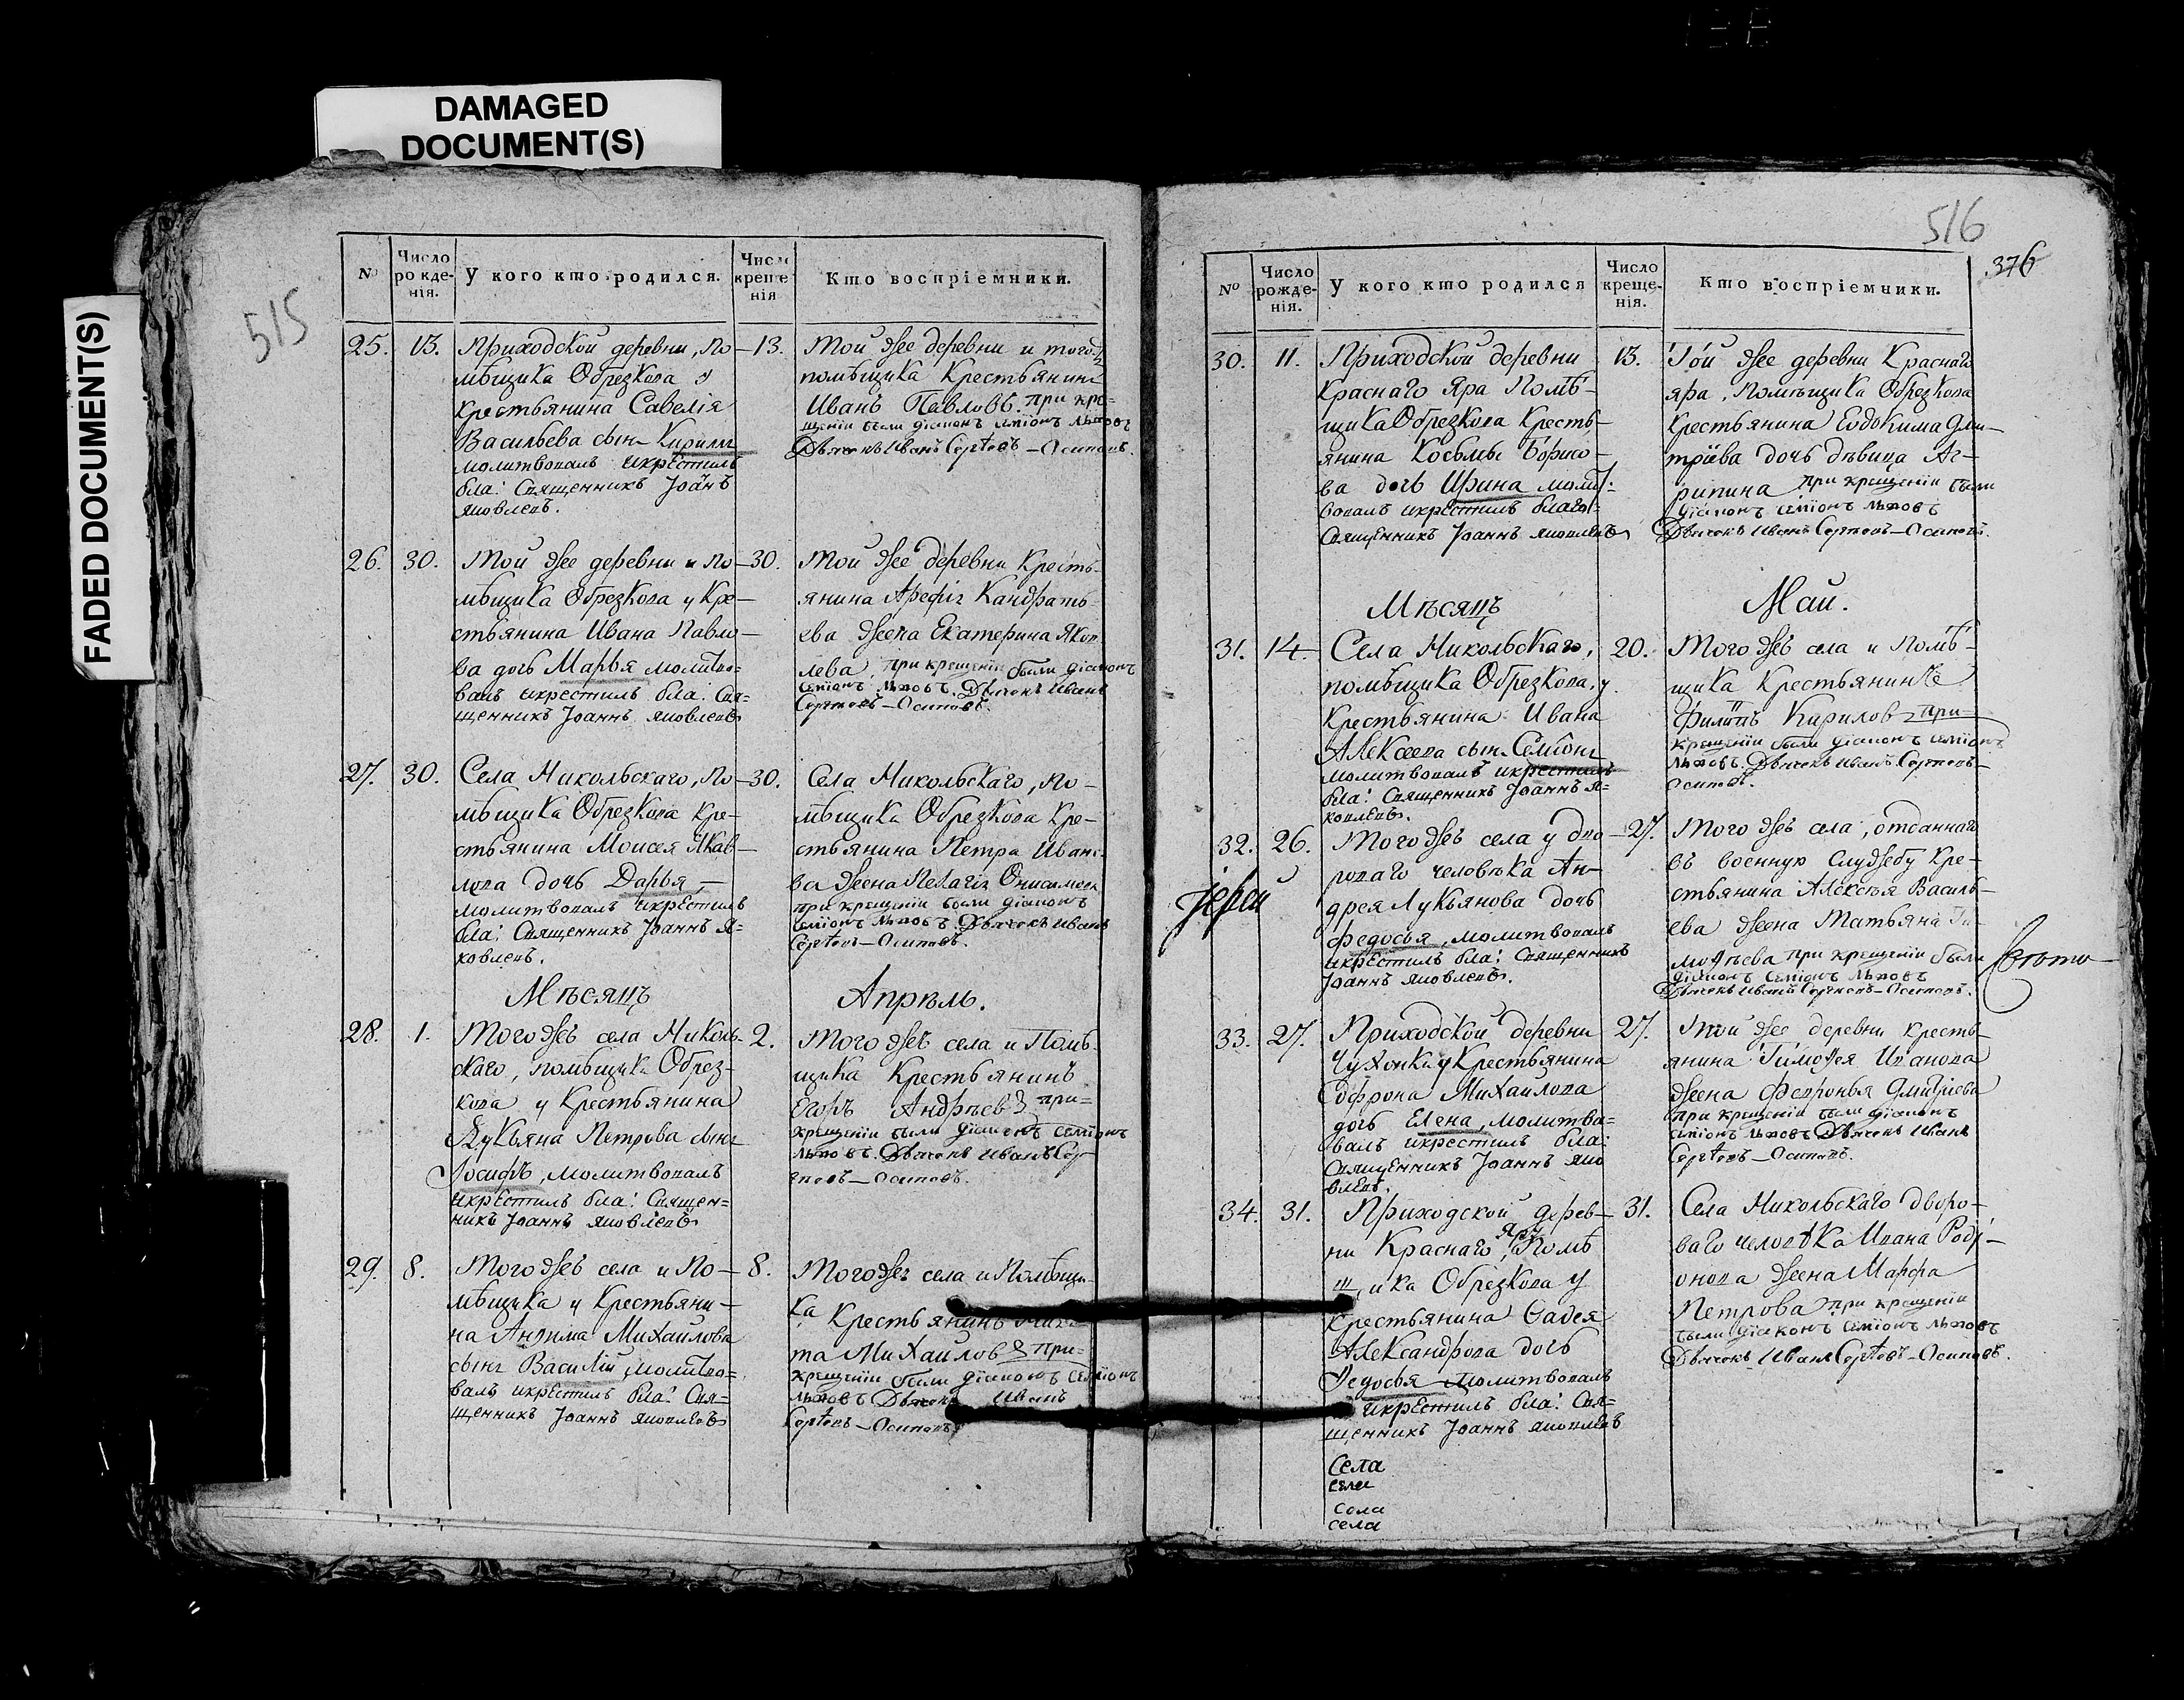 DAMAGED
DOCUMENT(S)
FADED DOCUMENT(S)
515
№
Число рожде-нія.
У кого кто родился.
Число креще-нія
Кто воспріемники.
25.
13.
Приходской деревни, По-
мѣщика Обрезкова у
крестьянина Савелія
Васильева сынъ Кирилъ
молитвовалъ икрестилъ
бла: Священникъ Іоаннъ
Яковлевъ.
13.
Той же деревни и тогожъ
помѣщика Крестьянинъ
Иванъ Павловъ. при кре-
щеніи были діаконъ Семіонъ Львовъ
Дьячекъ Иванъ Сергѣевъ – Осиповъ.
26.
30.
Той же деревни и По-
мѣщика Обрезкова у Кре-
стьянина Ивана Павло-
ва дочь Марья молитво=
валъ икрестилъ бла: Свя=
щенникъ Іоаннъ Яковлевъ
30.
Той же деревни Кресть-
янина Арефія Кандрать=
ева жена Екатерина Яков
лева, при крещеніи были діаконъ
Семіонъ Львовъ. Дьячекъ Иванъ
Сергѣевъ – Осиповъ.
27.
30.
Села Никольскаго, По-
мѣщика Обрезкова Кре-
стьянина Моисея Яков-
лева дочь Дарья,
молитвовалъ икрестилъ
бла: Священникъ Іоаннъ Я=
ковлевъ.
30.
Села Никольскаго, По-
мѣщика Обрезкова Кре-
стьянина Петра Ивано-
ва жена Пелагія Онисимова
при крещеніи были діаконъ
Семіонъ Львовъ. Дьячекъ Иванъ
Сергѣевъ – Осиповъ.
Мѣсяцъ Апрѣль.
28.
1.
Тогожъ села Николь-
скаго, помѣщика Обрез-
кова у Крестьянина
Лукьяна Петрова сынъ
Іосифъ, молитвовалъ
икрестилъ бла: Священ=
никъ Іоаннъ Яковлевъ
2.
Тогожъ села и Помѣ-
щика Крестьянинъ
Егоръ Андрѣевъ при-
крещеніи были діаконъ Семіонъ
Львовъ. Дьячекъ Иванъ Сер-
гѣевъ – Осиповъ.
29.
8.
Тогожъ села и По-
мѣщика у Крестьяни-
на Анфима Михаилова
сынъ Василій молитво=
валъ икрестилъ бла: Свя=
щенникъ Іоаннъ Яковлевъ
8.
Тогожъ села и Помѣщи-
ка Крестьянинъ Ники
та Михаиловъ при-
крещеніи были діаконъ Семіонъ
Львовъ Дьячекъ Иванъ
Сергѣевъ – Осиповъ.
516
376
№
Число рожде-нія.
У кого кто родился
Число креще-нія.
Кто воспріемники.
30.
11.
Приходской деревни
Краснаго Яра Помѣ-
щика Обрезкова Кресть-
янина Косьмы Борисо-
ва дочь Ирина молит-
вовалъ икрестилъ благо=
Священникъ Іоаннъ Яковлевъ
13.
Той же деревни Краснаго
яра, Помѣщика Обрезкова
Крестьянина Евдокима Дми-
тріева дочь дѣвица Аг-
рипина при крещеніи были
діаконъ Семіонъ Львовъ
Дьячекъ Иванъ Сергѣевъ – Осиповъ.
Мѣсяцъ Май.
31.
14.
Села Никольскаго,
помѣщика Обрезкова, у
Крестьянина Ивана
Алексеева сынъ Семіонъ
молитвовалъ икрестилъ
бла: Священникъ Іоаннъ Я=
ковлевъ.
20.
Того жъ села и Помѣ-
щика Крестьянинъ
Филипъ Кириловъ при-
крещеніи были діаконъ Семіонъ
Львовъ. Дьячекъ Иванъ Сергѣевъ –
Осиповъ.
32.
26.
Того жъ села у дво-
роваго человѣка Ан-
дрея Лукьянова дочь
Федосья, молитвовалъ
икрестилъ бла: Священникъ
Іоаннъ Яковлевъ.
27.
Того жъ села, отданнаго
въ военную службу Кре-
стьянина Алексѣя Василь-
ева жена Татьяна Ти-
мофѣева при крещеніи были
діаконъ Семіонъ Львовъ
Дьячекъ Иванъ Сергѣевъ – Осиповъ.
Іерей
33.
27.
Приходской деревни
Чухонка у Крестьянина
Софрона Михаилова
дочь Елена, молитво=
валъ икрестилъ бла:
Священникъ Іоаннъ Яко
влевъ.
27.
Той же деревни кресть-
янина Тимофея Иванова
жена Февронья Дмитріева
при крещеніи были діаконъ
Семіонъ Львовъ Дьячекъ Иванъ
Сергѣевъ – Осиповъ.
34.
31.
Приходской дерев-
ни Краснаго Яру Помѣ
щика Обрезкова у
Крестьянина Фадея
Александрова дочь
Федосья молитвовалъ
икрестилъ бла: Свя=
щенникъ Іоаннъ Яковлевъ
31.
Села Никольскаго дворо-
ваго человѣка Ивана Роди-
онова жена Марфа
Петрова при крещеніи
были діаконъ Семіонъ Львовъ
Дьячекъ Иванъ Сергѣевъ – Осиповъ.
Села
села
села
села